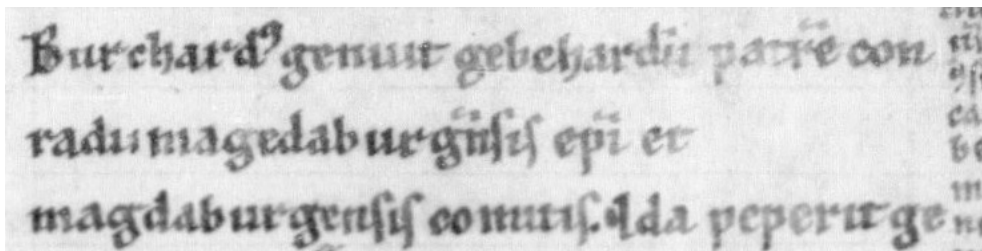 Burchardꝰ genuit gebehardū patrē con
radu magedaburgn̄sis ep̄i et
magdaburgensis comitis. Ida peperit ge